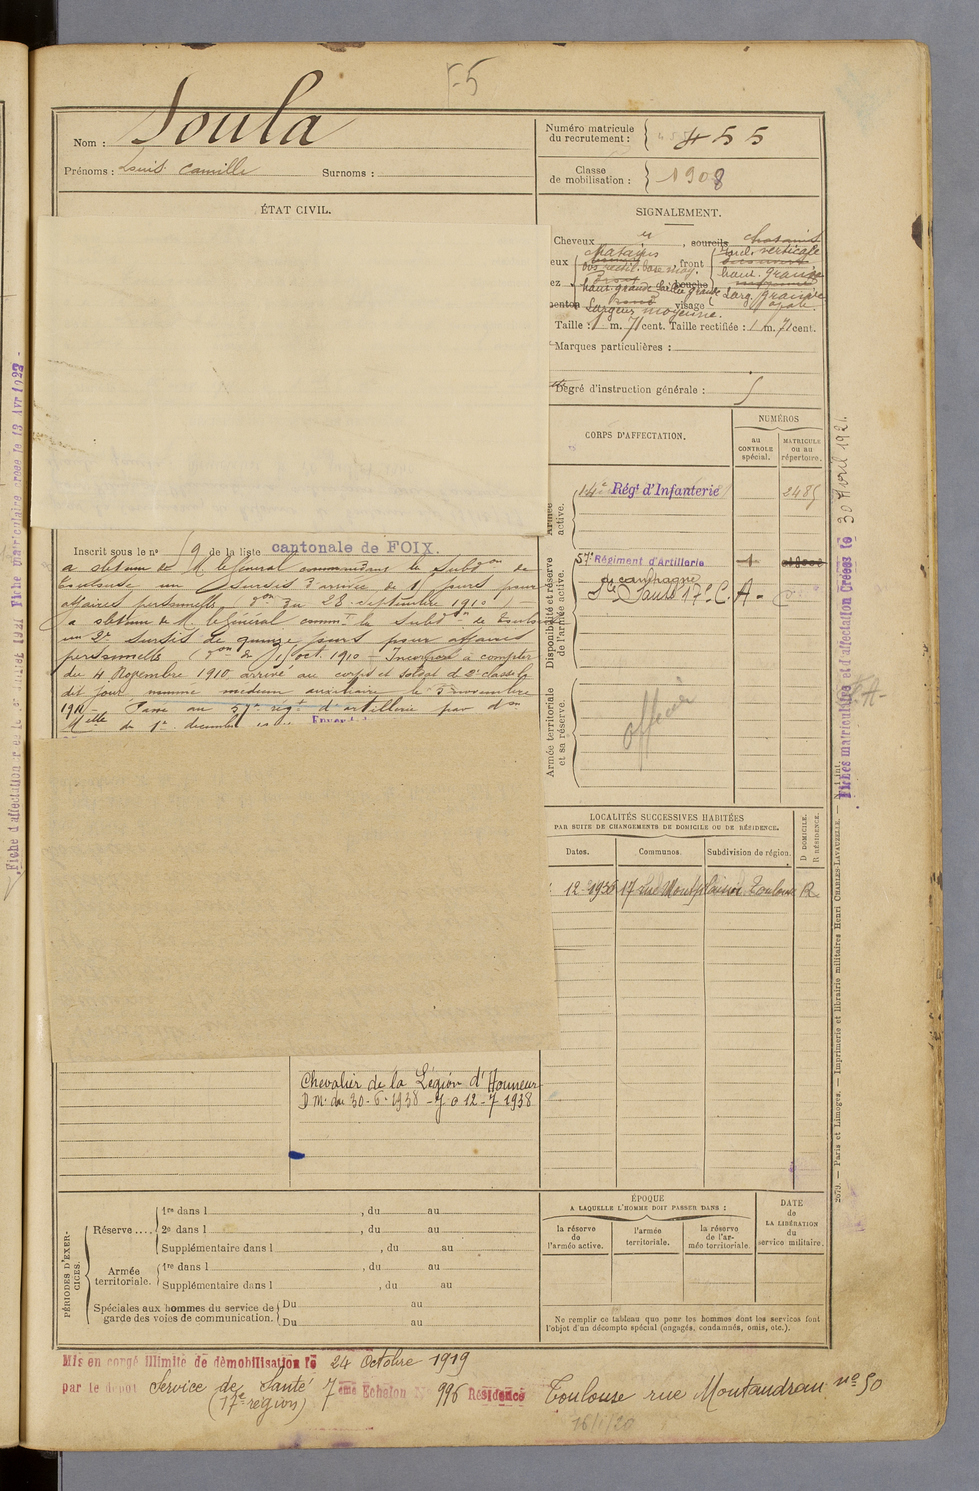 F-5
Nom : Soula
Prénoms : Louis Camille Surnoms :
Numéro matricule du recrutement : 455
Classe de mobilisation : 1908
ÉTAT CIVIL.
SIGNALEMENT.
Cheveux , sourcils chatains
eux chatains , front Incl. verticale
haut. grande
larg. grande
visage ovale
Largeur moyenne.
Taille : 1 m. 71 cent. Taille rectifiée : 1 m. 71 cent.
Marques particulières :
Degré d'instruction générale : 5
CORPS D'AFFECTATION.
NUMÉROS
au CONTROLE spécial.
MATRICULE ou au répertoire.
Armée active.
14e Régt d'Infanterie 2485
Disponibilité et réserve de l'armée active.
57e Régiment d'Artillerie
de campagne
Sce Santé 17e C. A.
Armée territoriale et sa réserve.
officier
Inscrit sous le no 59 de la liste cantonale de FOIX.
a obtenu de M. le Général commandant la Subdon de
Toulouse un Sursis d'arrivée de 15 jours pour
affaires personnelles, don du 28 septembre 1910
a obtenu de M. le Général commt la Subdon de Toulouse
un 2e Sursis de quinze jours pour affaires
personnelles (don du 1 oct. 1910 – Incorporé à compter
du 4 Novembre 1910, arrivé au corps et soldat de 2e classe le
dit jour, nommé médecin auxiliaire le 5 novembre
1911 – Passé au 57e régt d'artillerie par don
Melle du 1er décembre
LOCALITÉS SUCCESSIVES HABITÉES
PAR SUITE DE CHANGEMENTS DE DOMICILE OU DE RÉSIDENCE.
Dates. Communes. Subdivision de région. D DOMICILE. R RÉSIDENCE.
12-1936 17 rue Montplaisir Toulouse R
Chevalier de la Légion d'Honneur
D M. du 30-6-1938 - J o 12-7-1938
PÉRIODES D'EXERCICES.
Réserve .... 1re dans l , du au
2e dans l , du au
Supplémentaire dans l , du au
Armée territoriale. 1re dans l , du au
Supplémentaire dans l , du au
Spéciales aux hommes du service de garde des voies de communication. Du au
Du au
ÉPOQUE
A LAQUELLE L'HOMME DOIT PASSER DANS :
la réserve de l'armée active.
l'armée territoriale.
la réserve de l'armée territoriale.
DATE de LA LIBÉRATION du service militaire.
Ne remplir ce tableau que pour les hommes dont les services font
l'objet d'un décompte spécial (engagés, condamnés, omis, etc.).
Mis en congé illimité de démobilisation le 24 Octobre 1919
par le dépôt Service de Santé 7eme Echelon N 996 Résidence Toulouse rue Montaudran no 50
(17e région)
16/1/20
Fiches matriculaire et d'affectation Créées le 30 Avril 1921.
2579. — Paris et Limoges. — Imprimerie et librairie militaires Henri CHARLES-LAVAUZELLE.
Fiche matriculaire créée le 13 Avr 1923
Fiche d'affectation créée le